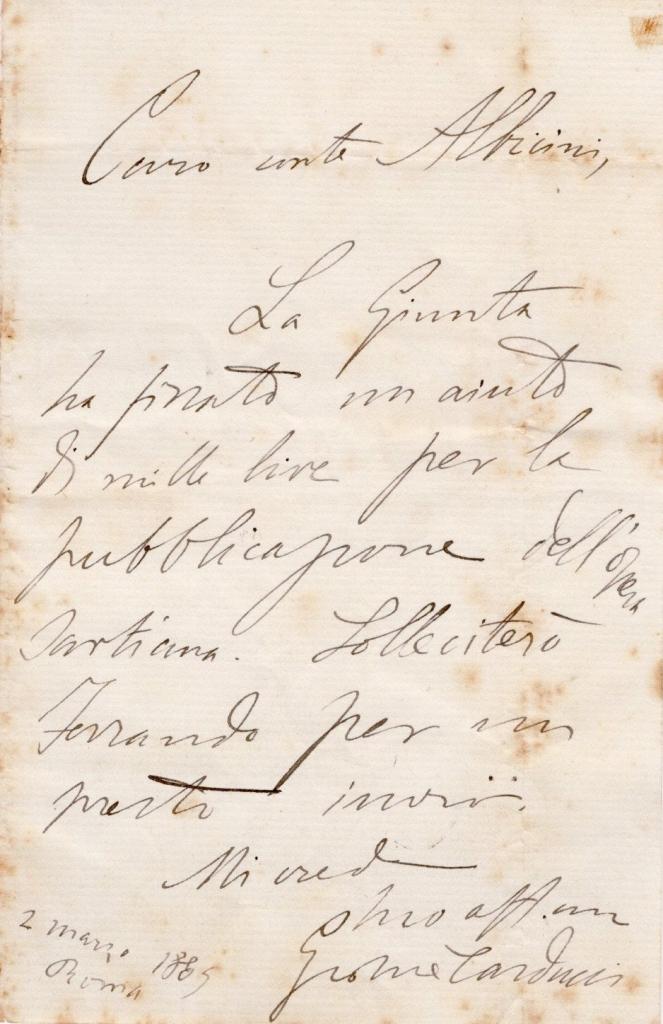 Caro conte Albicini,
La Giunta
ha fissato un aiuto
di mille lire per la
pubblicazione dell'opera
sartiana. Solleciterò
Ferrando per un
presto invio.
Mi creda
suo aff.mo
Giosue Carducci
2 marzo 1885
Roma